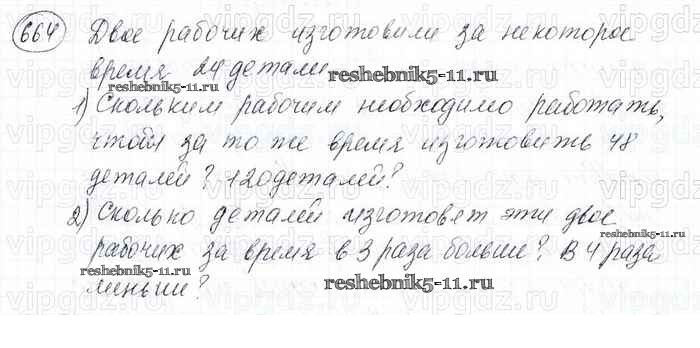 664 Двое рабочих изготовили за некоторое
время 24 детали
reshebnik5-11.ru
1) Скольким рабочим необходимо работать,
чтобы за то же время изготовить 48
деталей? 120 деталей?
2) Сколько деталей изготовят эти двое
reshebnik5-11.ru
рабочих за время в 3 раза больше? В 4 раза
reshebnik5-11.ru
reshebnik5-11.ru
меньше?